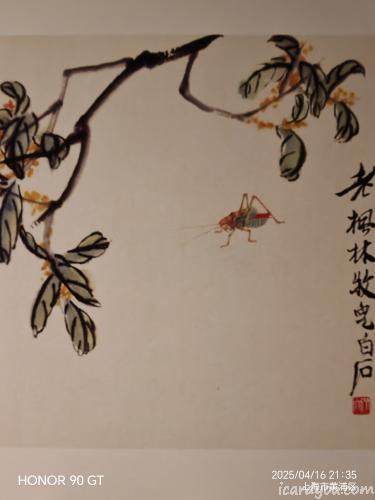 老楓林
白石
HONOR 90 GT
2025/04/16 21:35
上海市黄浦区
icarayou.com